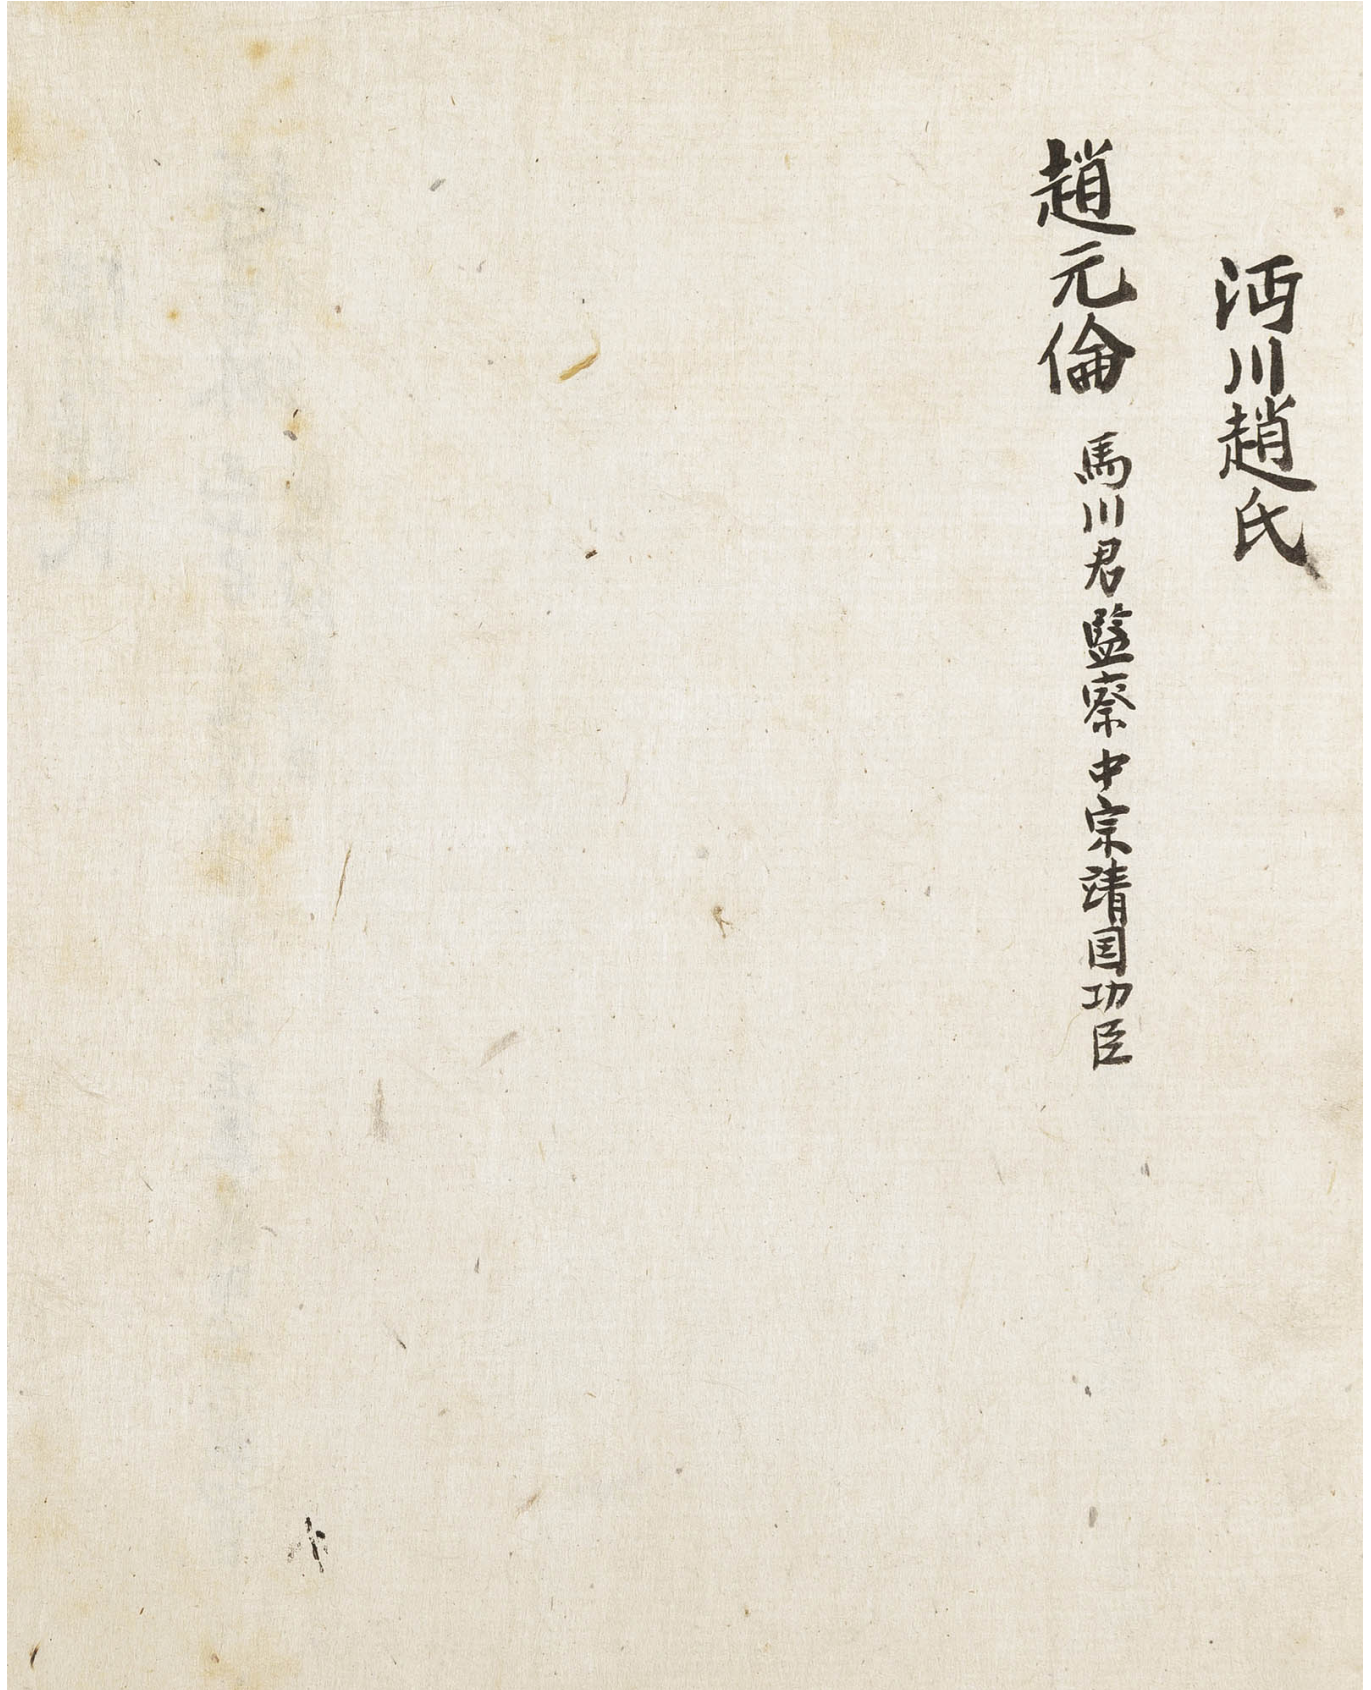 沔川趙氏
趙元倫 馬川君監察中宗靖国功臣